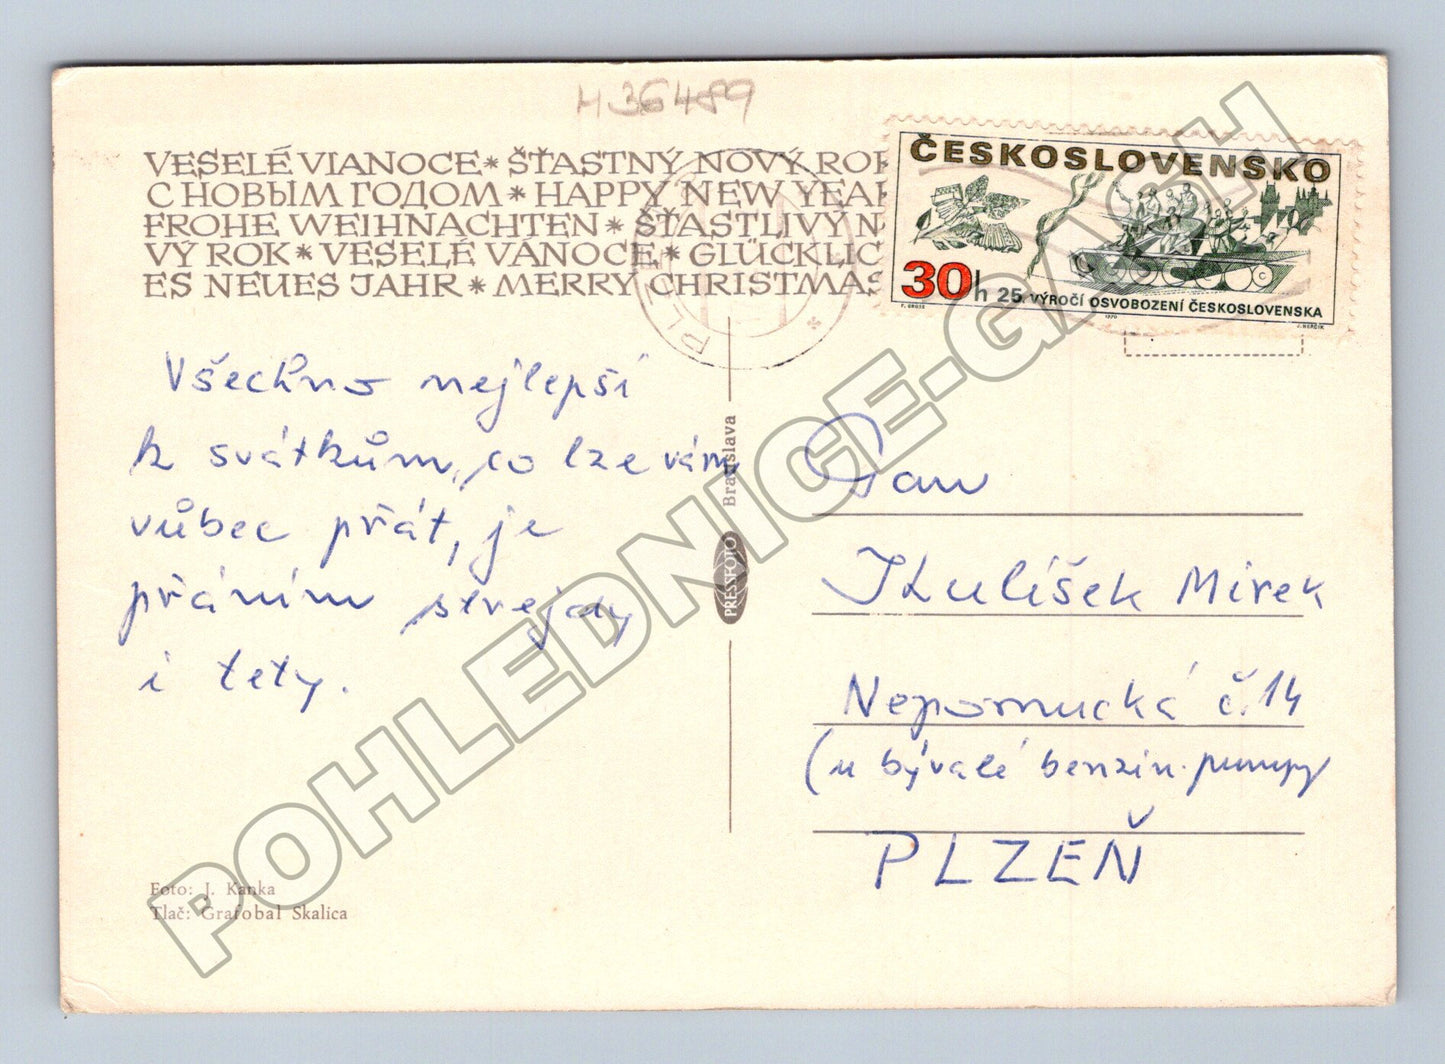 H36489
VESELÉ VIANOCE * ŠŤASTNÝ NOVÝ ROK
С НОВЫМ ГОДОМ * HAPPY NEW YEAR
FROHE WEIHNACHTEN * ŠŤASTLIVÝ N
VÝ ROK * VESELÉ VÁNOCE * GLÜCKLIC
ES NEUES JAHR * MERRY CHRISTMAS
ČESKOSLOVENSKO
30h 25. VÝROČÍ OSVOBOZENÍ ČESKOSLOVENSKA
1970
PLZ
Všechno nejlepší
k svátkům, co lze vám
vůbec přát, je
přáním strejdy
i tety.
PRESSFOTO Bratislava
Pan
Kulíšek Mirek
Nepomucká č. 14
(u bývalé benzin. pumpy
PLZEŇ
Foto: J. Kanka
Tlač: Grafobal Skalica
POHLEDNICE-GASH